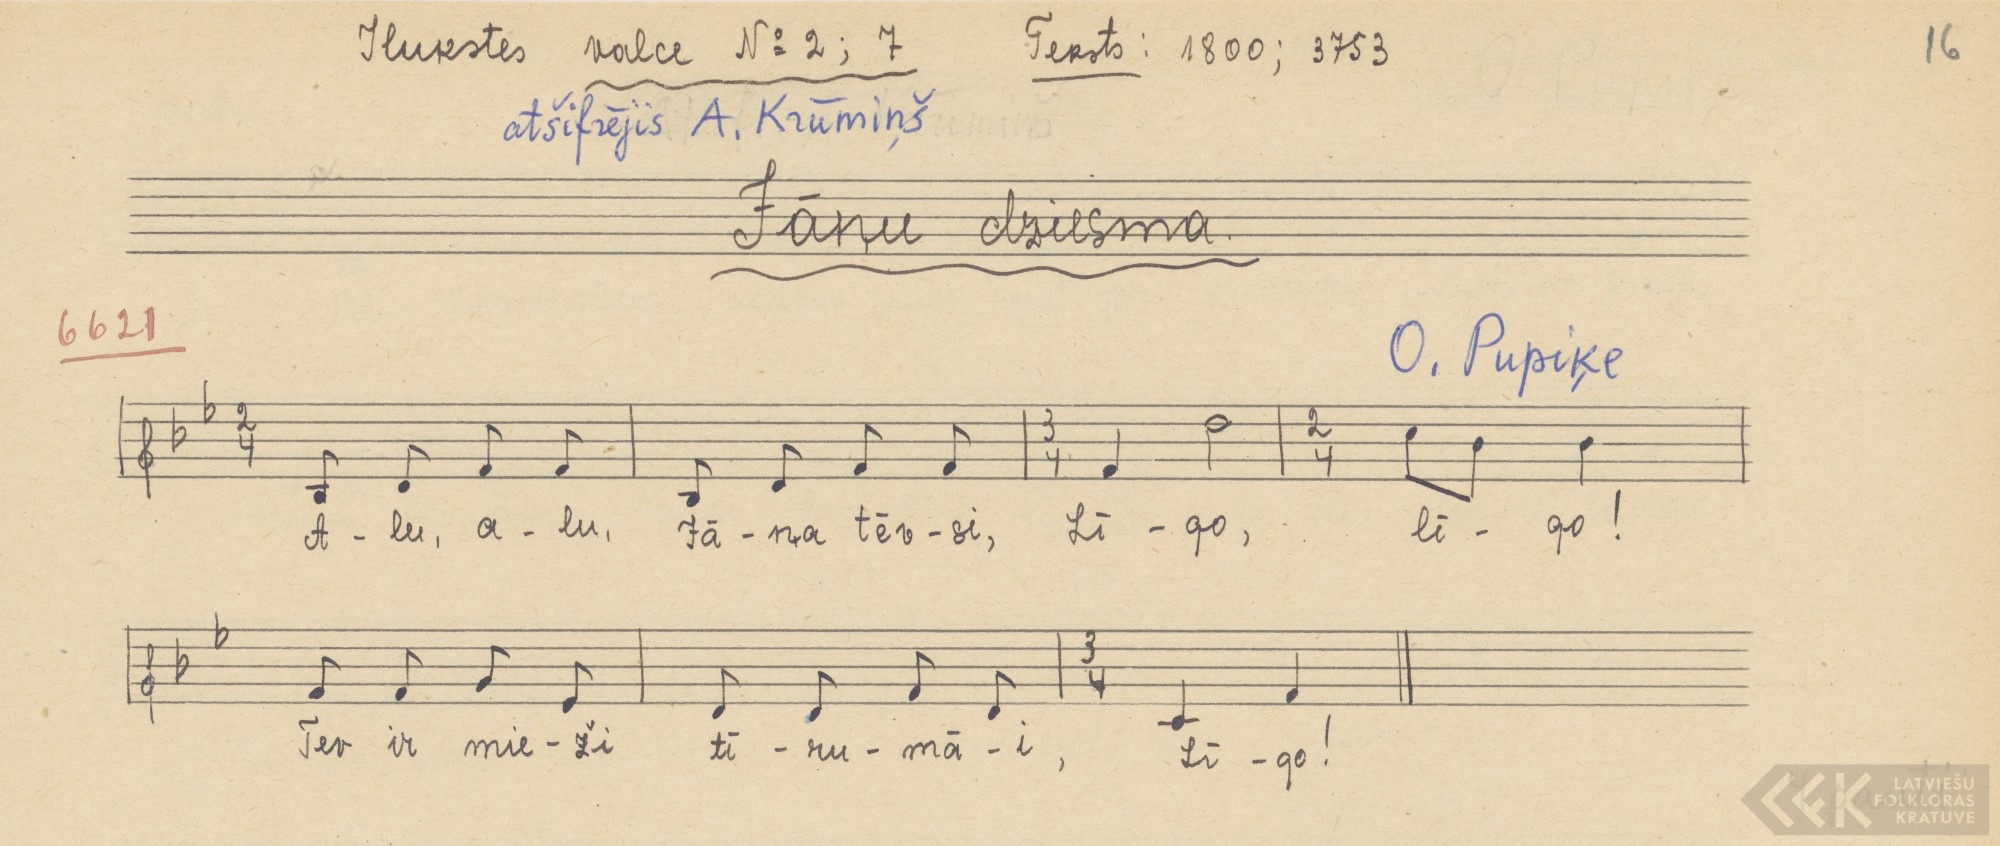 Ilukstes valce № 2; 7 Teksts: 1800; 3753
16
atšifrējis A. Krūmiņš
Jāņu dziesma.
6621
O. Pupiķe
2 4 3 4 2 4
A - lu, a - lu, Jā - ņa tēv - si, Lī - go, lī - go!
3 4
Tev ir mie - ži tī - ru - mā - i, Lī - go!
LATVIEŠU
FOLKLORAS
KRATUVE